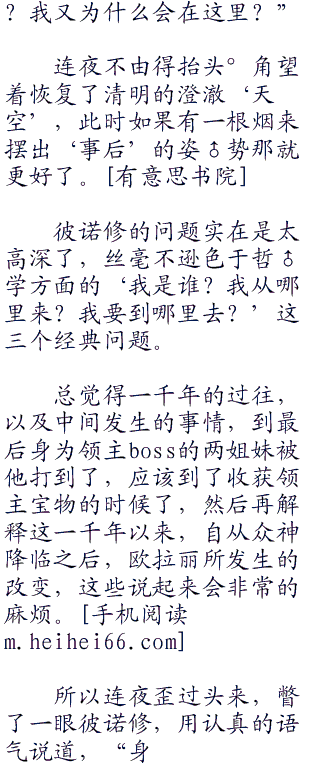 ？我又为什么会在这里？”
连夜不由得抬头°角望
着恢复了清明的澄澈‘天
空’，此时如果有一根烟来
摆出‘事后’的姿♂势那就
更好了。[有意思书院]
彼诺修的问题实在是太
高深了，丝毫不逊色于哲♂
学方面的‘我是谁？我从哪
里来？我要到哪里去？’这
三个经典问题。
总觉得一千年的过往，
以及中间发生的事情，到最
后身为领主boss的两姐妹被
他打到了，应该到了收获领
主宝物的时候了，然后再解
释这一千年以来，自从众神
降临之后，欧拉丽所发生的
改变，这些说起来会非常的
麻烦。[手机阅读
m.heihei66.com]
所以连夜歪过头来，瞥
了一眼彼诺修，用认真的语
气说道，“身